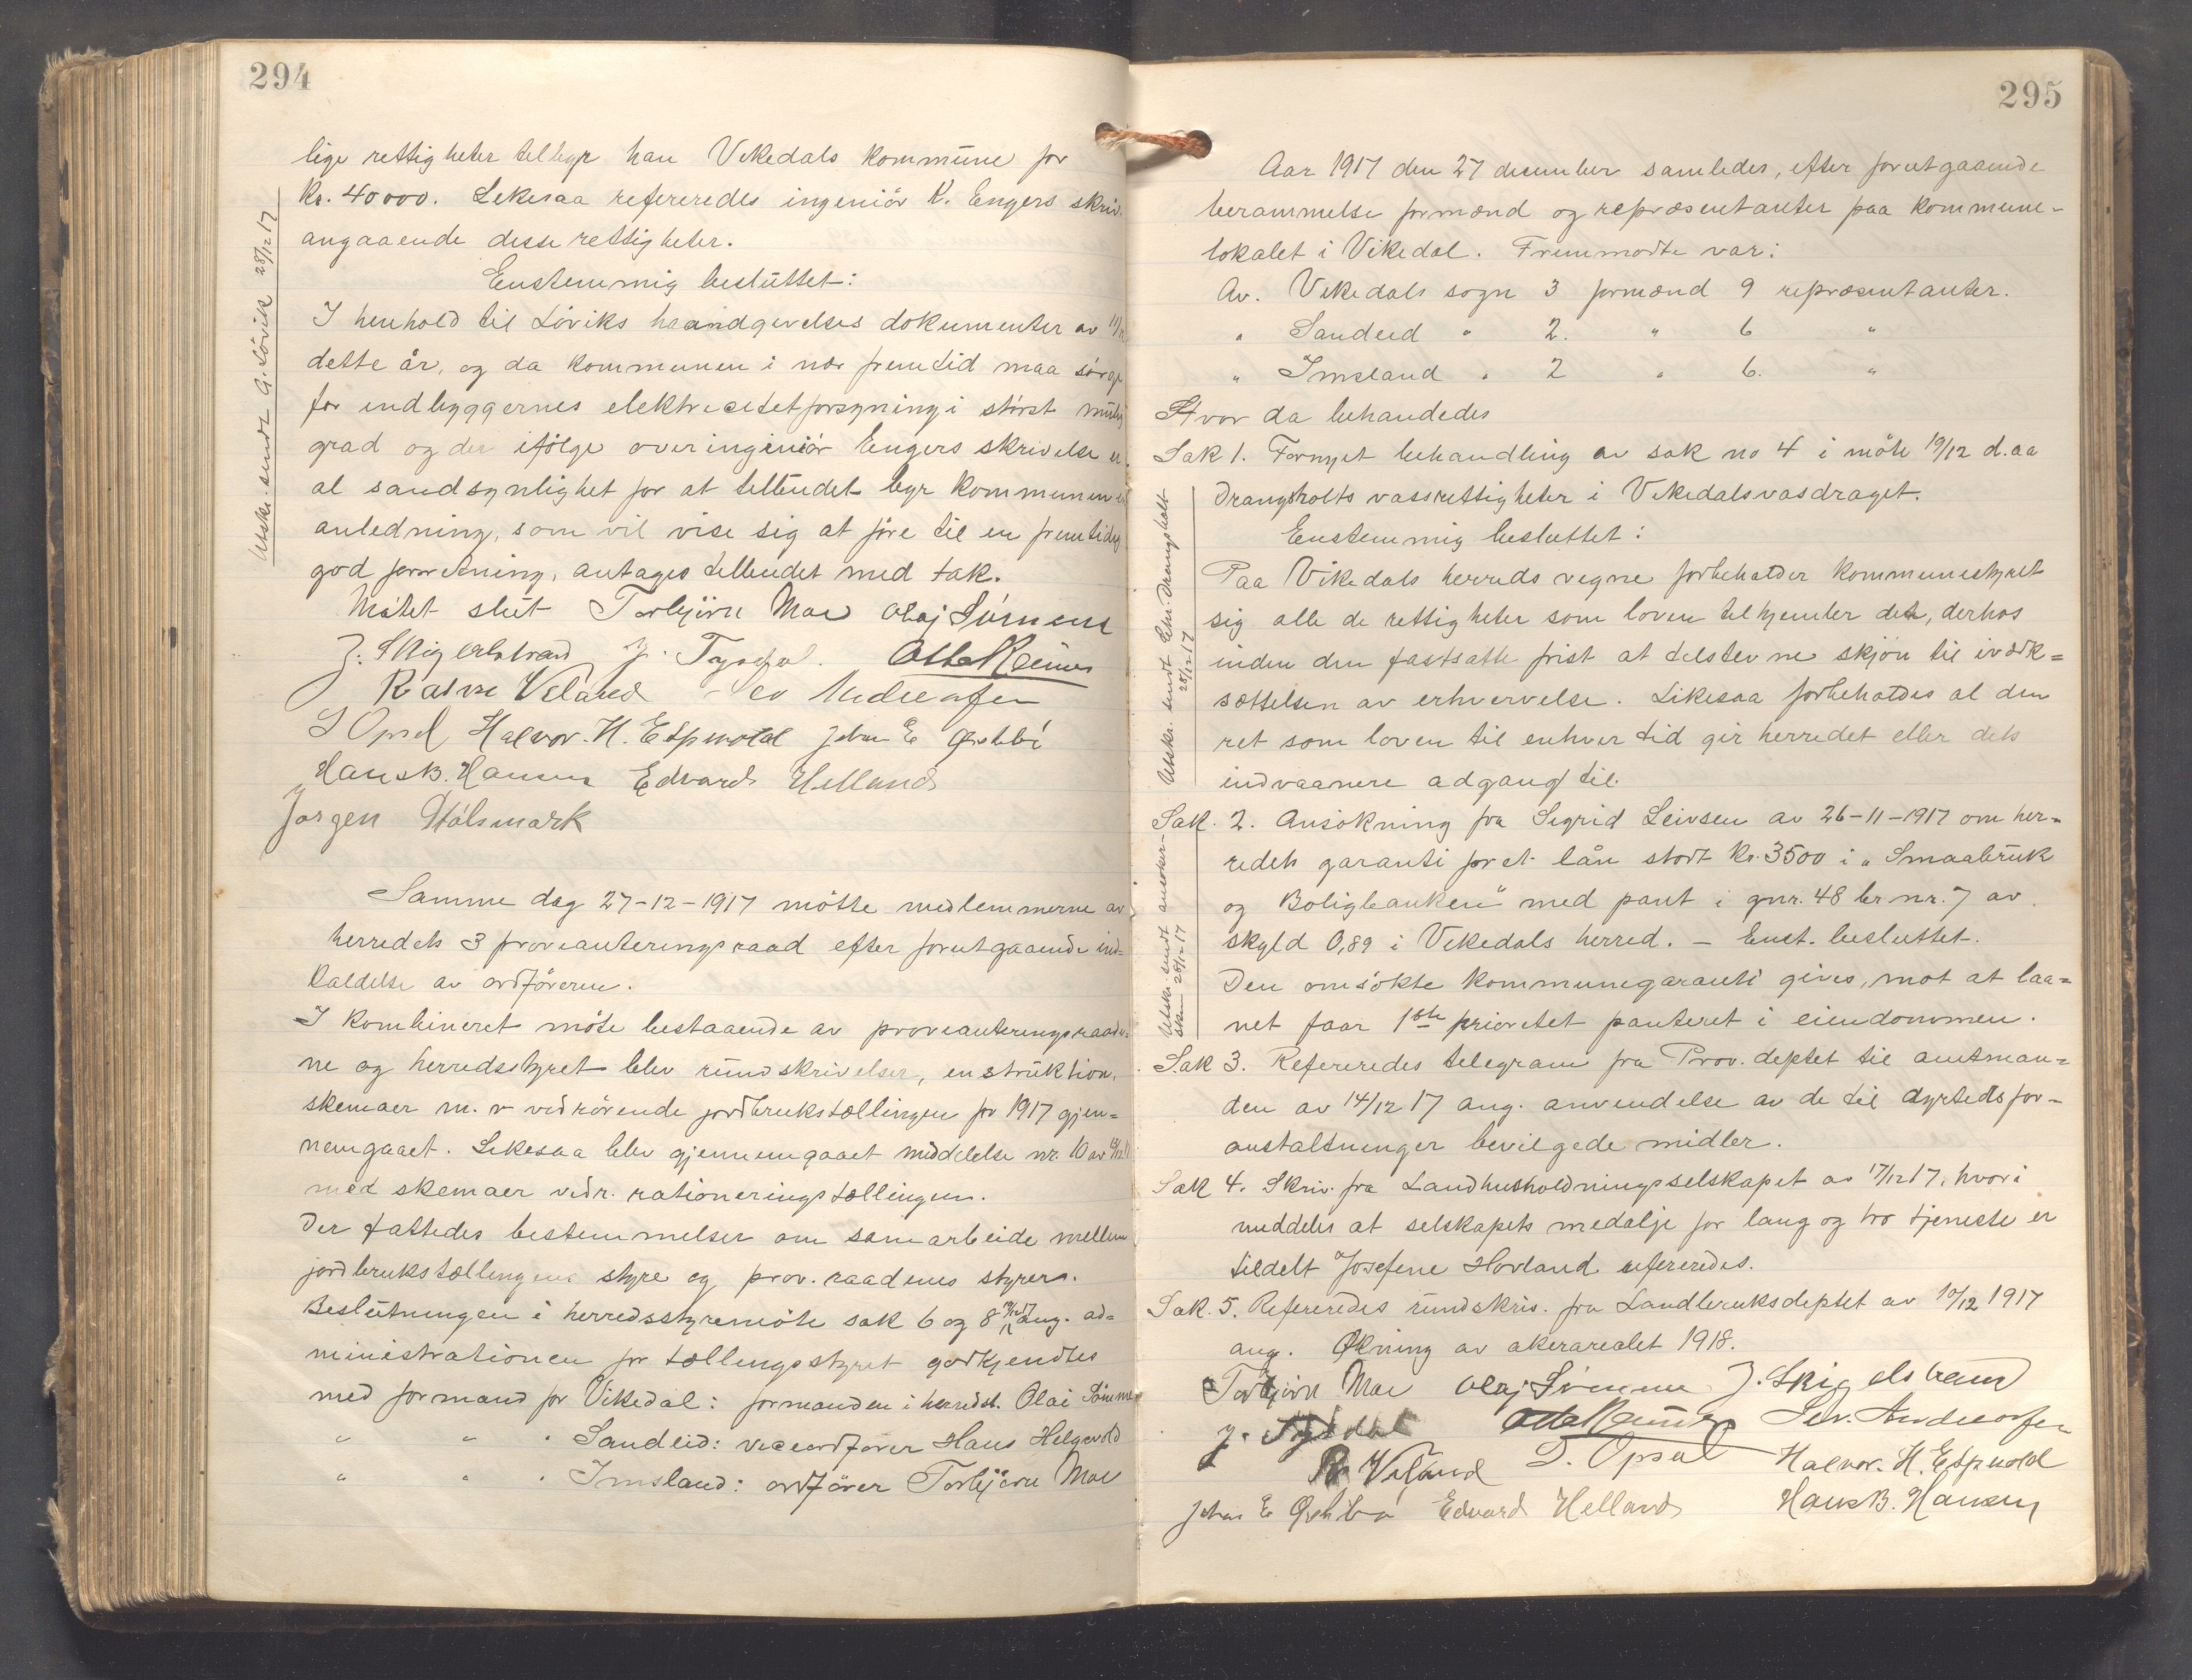 294
lige rettigheter tilbyr han Vikedals kommune for
Kr. 40000. Likesaa refereredes ingeniör K. Engers skriv.
angaaende disse rettigheter.
Enstemmig besluttet:
I henhold til Löviks haandgivelses dokumenter av
dette år, og da kommunen i nær fremtid maa sörge
for indbyggernes elektricitetforsyning i störst mulig
grad og der ifölge overingeniör Engers skrivelse er
al sandsynlighet for at tilbudet byr kommunen en
anledning, som vil vise sig at före til en fremtidig
god forretning, antages tilbudet med tak.
Mötet slut Torbjörn Moe Olaj Sömme
J. Skigelstrand J. Tysdal. Otto Reimers
Rasm Veland Sev Andreassen
S Opsal Halvor. H. Espevold Johan E
Hans B. Hansen Edvard Helland
Jørgen Stålsmark
Utskr. sendt G. Lövik 28/12 17
Samme dag 27-12-1917 mötte medlemmerne av
herredets 3 provianteringsraad efter forutgaaende ind-
kaldelse av ordföreren.
I kombineret möte bestaaende av provianteringsraade-
ne og herredsstyret blev rundskrivelser, instruktion,
skemaer m. v vedrörende jordbrukstællingen for 1917 gjen-
nemgaaet. Likesaa blev gjennemgaaet meddelelse nr. 10 av
med skemaer vedr. rationeringstællingen.
Der fattedes bestemmelser om samarbeide mellem
jordbrukstællingens styre og prov. raadenes styrer.
Beslutningen i herredsstyremöte sak 6 og 8 ang. ad-
ministrationen for tællingsstyret godkjendtes
med formand for Vikedal: formanden i herredst. Olai Sömme
" " " Sandeid: viceordförer Hans Helgevold
" " " Imsland: ordförer Torbjörn Moe
295
Aar 1917 den 27 december samledes, efter forutgaaende
berammelse formænd og repræsentanter paa kommune-
lokalet i Vikedal. Fremmødte var:
Av. Vikedals sogn 3 formænd 9 repræsentanter.
" Sandeid " 2. " 6 "
" Imsland " 2 " 6. "
Hvor da behandedes
Sak 1. Fornyet behandling av sak no 4 i möte 19/12 d.aa
Drangsholts vassrettigheter i Vikedalsvasdraget.
Enstemmig besluttet:
Paa Vikedals herreds vegne forbeholder kommunestyret
sig alle de rettigheter som loven tilkjender det, derhos
inden den fastsatte frist at tilstevne skjön til iværk=
sættelsen av erhvervelse. Likesaa forbeholdes al den
ret som loven til enhver tid gir herredet eller dets
indvaanere adgang til.
Utskr. sendt Elm. Drangsholt
28/12-17
Sak. 2. Ansökning fra Sigrid Leivsen av 26-11-1917 om her-
redets garanti for et lån stort kr. 3500 i „Smaabruk
og Boligbanken" med pant i gnr. 48 br nr. 7 av
skyld 0,89 i Vikedals herred. - Enst. besluttet.
Den omsökte kommunegaranti gives, mot at laa=
net faar 1ste prioritet panteret i eiendommen.
Utskr. sendt ansöker-
sken 28/12-17
Sak 3. Refereredes telegram fra Prov. deptet til amtman=
den av 14/12 17 ang. anvendelse av de til dyrtidsfor-
anstaltninger bevilgede midler.
Sak 4. Skriv. fra Landhusholdningsselskapet av 17/12 17, hvori
meddeles at selskapets medalje for lang og tro tjeneste er
tildelt Josefine Hovland refereredes.
Sak. 5. Refereredes rundskriv. fra Landbruksdeptet av 10/12 1917
ang. Økning av akerarealet 1918.
Torbjörn Moe Olaj Sömme J. Skigelstrand
J. Tysdal Otto Reimers Sev. Andreassen
R Veland S. Opsal Halvor. H. Espevold
Johan E Edvard Helland Hans B. Hansen